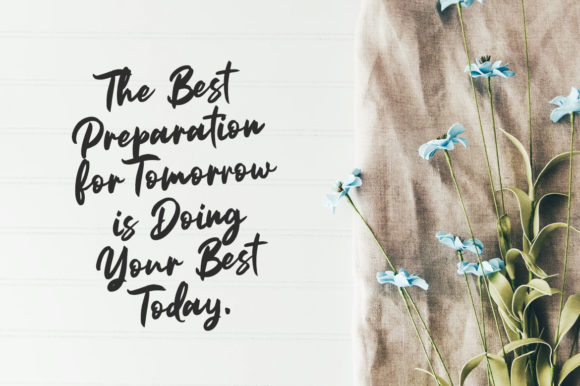 The Best
Preparation
for Tomorrow
is Doing
Your Best
Today.